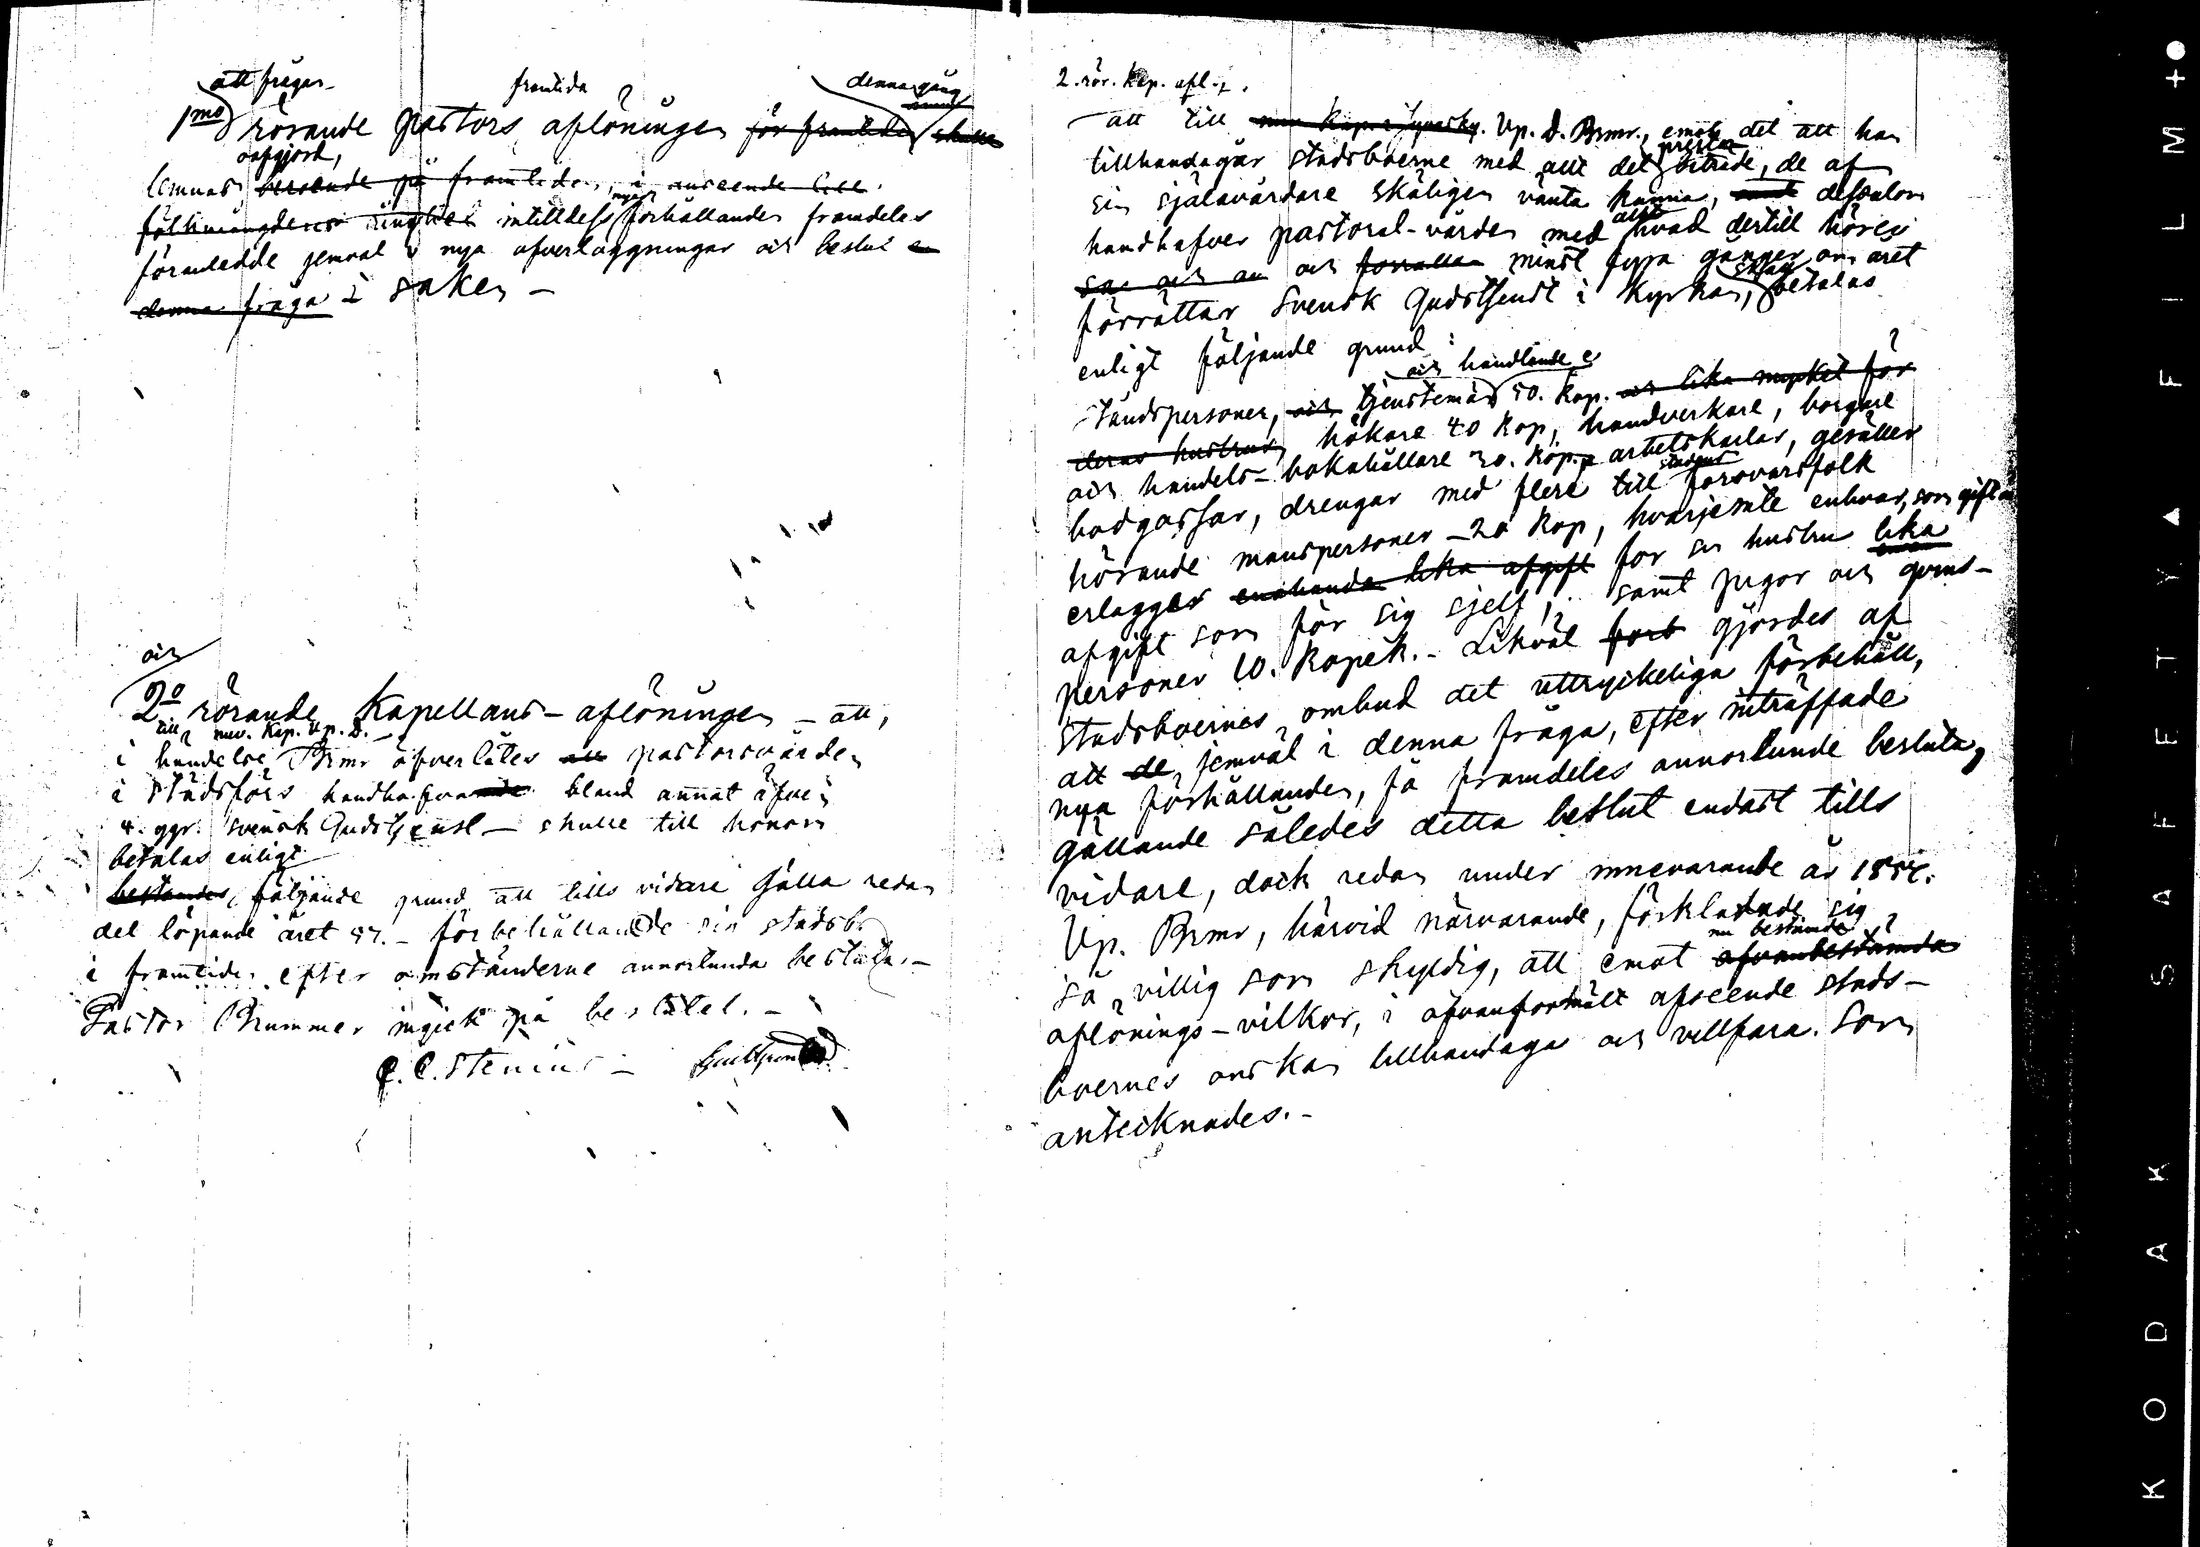 att frågan
1mo rörande pastors framtida aflöningen för framtiden denna gång skulle
lemnas oafgjord, beroende på framtiden, i anseende till
folkmängdens ringhet intilldess nya förhållanden framdeles
föranledde jemväl nya öfverläggningar och beslut en
denna fråga i saken —
och
2o rörande Kapellans-aflöningen — att,
i händelse till nuv. Kap. Vp. D. Brmr öfverlätes all pastorsvården
i stadsförs handhafvande bland annat äfven
4. ggr. svensk Gudstjenst — skulle till honom
betalas enligt
bestämdes, följande grund att tills vidare Gälla redan
det löpande året 57. — förbehållande sin stadsb
i framtiden efter omständerne annorlunda besluta. —
Pastor Brummer ingick på beslutet. —
C. C. Stenius —
2. rör. Kap. afl.
att till nuv. Kap. Vp. D. Brmr, emot det att han
tillhandagår stadsboerne med allt det presterl. biträde, de af
sin själavårdare skäligen vänta kunna, samt dessutom
handhafver pastoral-vården med allt hvad dertill hörer
och förrättar minst fyra gånger om året
förrättar Svensk Gudstjenst i Kyrkan, skall betalas
enligt följande grund:
Ståndspersoner, och tjenstemän och handlande 50. Kop. och lika mycket för
deras hustrur, hökare 40 Kop, handverkare, borgare
och handels-bokhållare 30. Kop. arbetskarlar, gesäller
bodgossar, drengar med flere till stadens försvarsfolk
hörande manspersoner — 20 Kop, hvarjemte enhvar, som gift är
erlägger enahanda lika afgift för sin hustru lika
afgift som för sig sjelf, samt pigor och qvins-
personer 10. Kopek. — Likväl gjordes af
stadsboernes ombud det uttryckeliga förbehåll,
att de, jemväl i denna fråga, efter inträffade
nya förhållanden, få framdeles annorlunda besluta,
gällande således detta beslut endast tills
vidare, dock redan under innevarande år 1857.
Vp. Brmr, härvid närvarande, förklarade sig
så villig som skyldig, att emot nu bestämde ofvanbestämda
aflönings-vilkor, i ofvanförmält afseende stads-
boernes önskan tillhandagå och villfara. Som
antecknades. —
KODAK SAFETY FILM